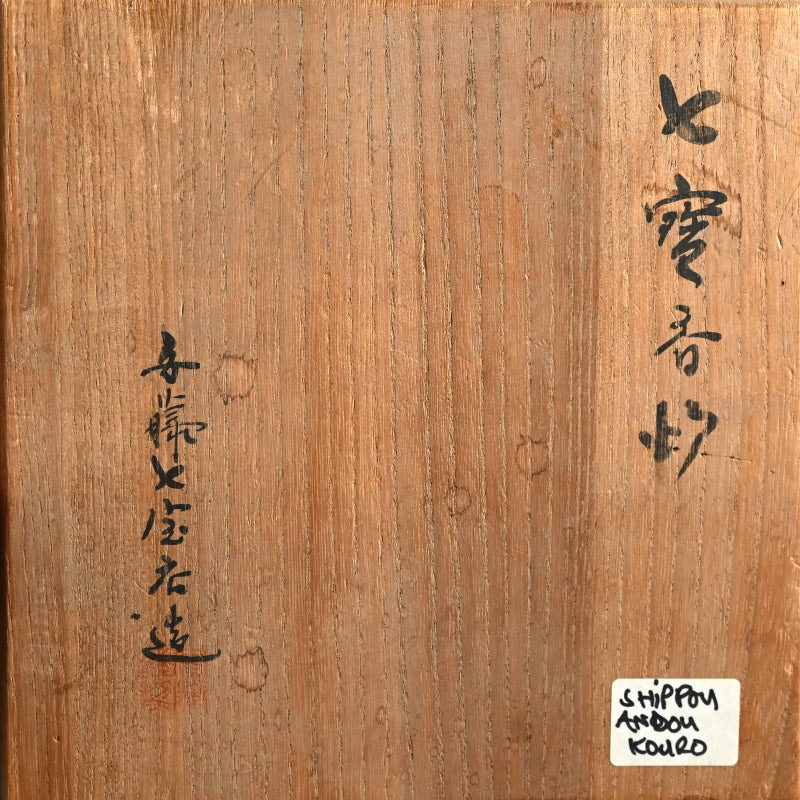 七寳香炉
安藤七宝店造
SHIPPOU
ANDOU
KOURO